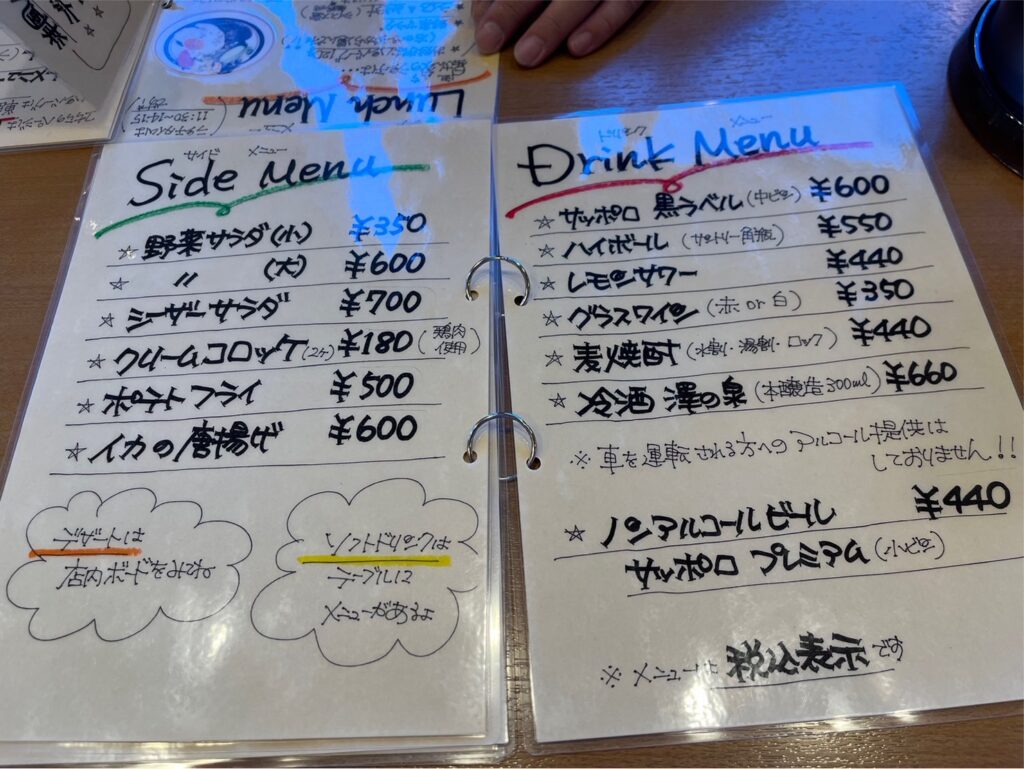 Lunch Menu
ランチタイムは
11:30~14:15
サイド メニュー
Side Menu
☆ 野菜サラダ(小) ¥350
☆ 〃 (大) ¥600
☆ シーザーサラダ ¥700
☆ クリームコロッケ(2ケ) ¥180 (鶏肉使用)
☆ ポテトフライ ¥500
☆ イカの唐揚げ ¥600
デザートは
店内ボードをみてね
ソフトドリンクは
テーブルに
メニューがあるよ
ドリンク メニュー
Drink Menu
☆ サッポロ 黒ラベル(中ビン) ¥600
☆ ハイボール (サントリー角瓶) ¥550
☆ レモンサワー ¥440
☆ グラスワイン (赤 or 白) ¥350
☆ 麦焼酎 (水割・湯割・ロック) ¥440
☆ 冷酒 澤の泉 (本醸造300ml) ¥660
※ 車を運転される方へのアルコール提供は
しておりません!!
☆ ノンアルコールビール ¥440
サッポロ プレミアム (小ビン)
※ メニューは 税込表示です